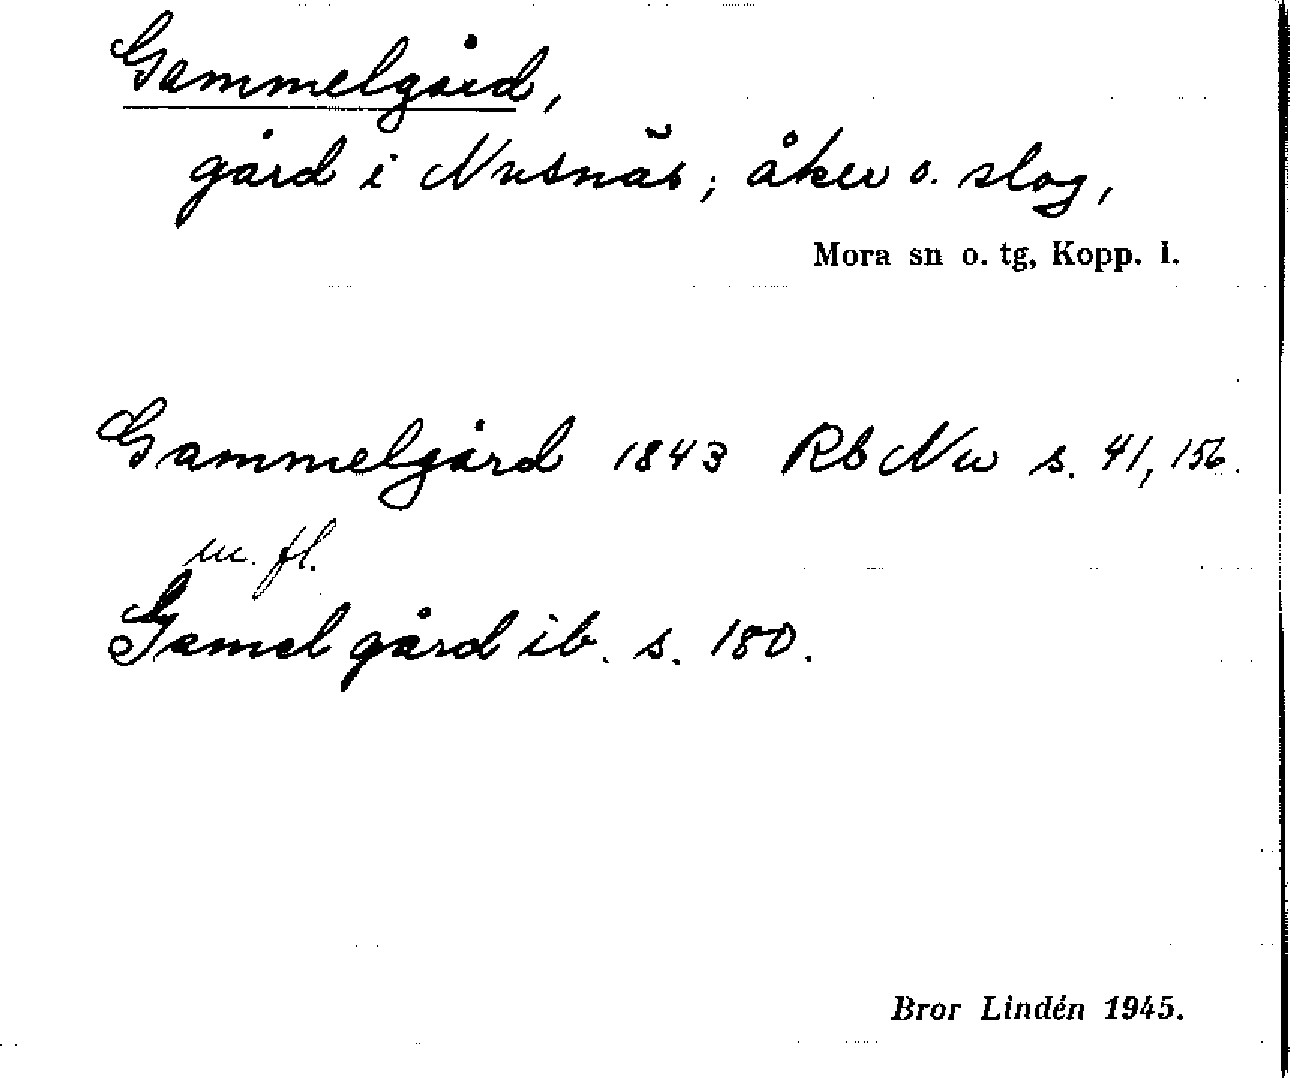 Gammelgård,
gård i Nusnäs; åker o. slog,
Mora sn o. tg, Kopp. l.
Gammelgård 1843 Rb Nu s. 41, 156.
m. fl.
Gamel gård ib. s. 180.
Bror Lindén 1945.